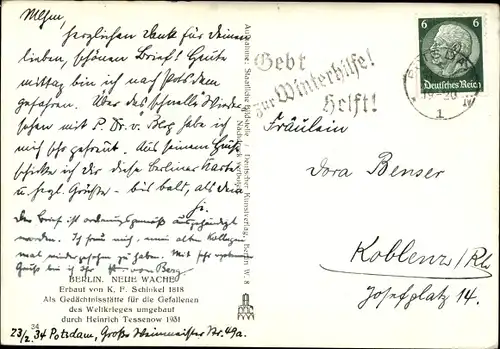 herzlichen Dank für deinen
lieben, schönen Brief! Heute
mittag bin ich nach Potsdam
gefahren. Über das schnelle Wieder
sehen mit P. Dr. v. habe ich
mich sehr gefreut. Aus seinem
schicke ich dir diese Berliner Karte
u. herzl. Grüße - bis bald, als dein
Der Brief ist ordnungsgemäß ausgehändigt
worden. Ich freue mich, meinen alten Kollegen
mal wiedergesehen zu haben. Mit sehr
Gruß bin ich Ihr v. Berg
BERLIN. NEUE WACHE
Erbaut von K. F. Schinkel 1818
Als Gedächtnisstätte für die Gefallenen
des Weltkrieges umgebaut
durch Heinrich Tessenow 1931
34
23/2.34 Potsdam, Große Weinmeister Str. 49a.
Aufnahme: Staatliche Bildstelle Deutscher Kunstverlag, Berlin W. 8
Nachdruck verboten
Gebt
zur Winterhilfe!
Helft!
6 6
Deutsches Reich
19-20
1 IV
Fräulein
Dora Benser
Koblenz/Rh
Josefplatz 14.